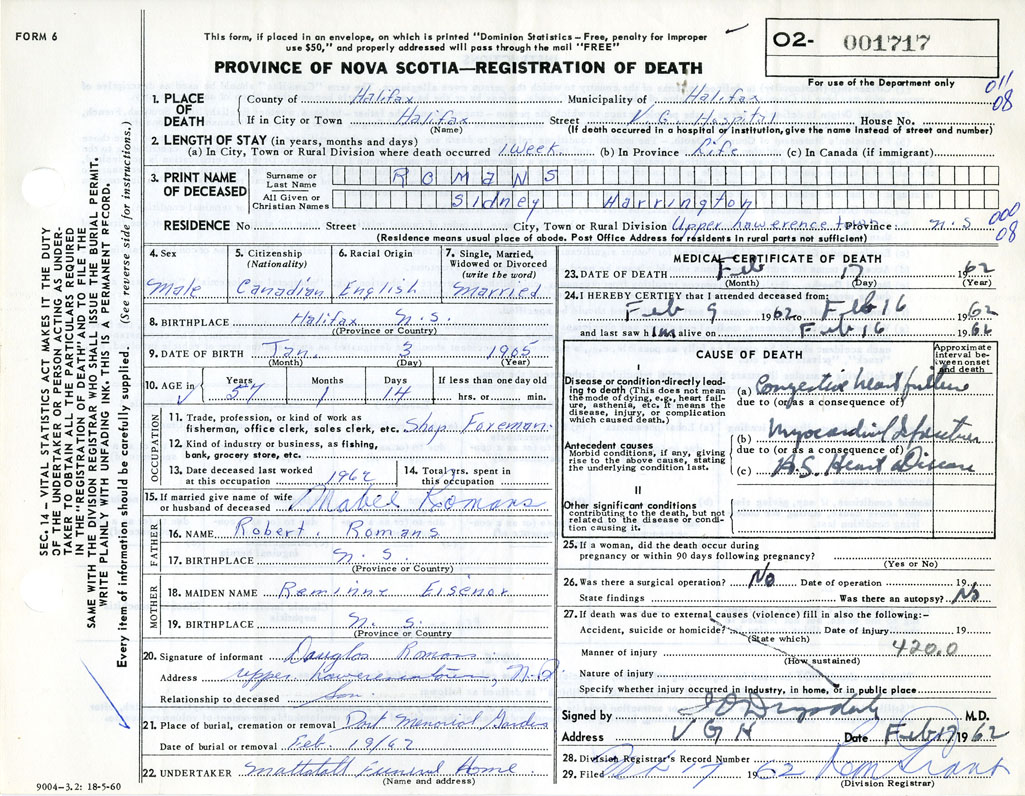 FORM 6
This form, if placed in an envelope, on which is printed "Dominion Statistics – Free, penalty for improper
use $50," and properly addressed will pass through the mail "FREE"
PROVINCE OF NOVA SCOTIA—REGISTRATION OF DEATH
O2- 001717
For use of the Department only
011
08
1. PLACE OF DEATH
County of Halifax Municipality of Halifax
If in City or Town Halifax Street V. G. Hospital House No.
(Name) (If death occurred in a hospital or institution, give the name instead of street and number)
2. LENGTH OF STAY (in years, months and days)
(a) In City, Town or Rural Division where death occurred 1 week (b) In Province Life (c) In Canada (if immigrant)
3. PRINT NAME OF DECEASED
Surname or Last Name ROMANS
All Given or Christian Names Sidney Harrington
000
08
RESIDENCE No Street City, Town or Rural Division Upper Lawerence town Province N.S
(Residence means usual place of abode. Post Office Address for residents in rural parts not sufficient)
4. Sex
Male
5. Citizenship
(Nationality)
Canadian
6. Racial Origin
English
7. Single, Married, Widowed or Divorced
(write the word)
Married
8. BIRTHPLACE Halifax N.S.
(Province or Country)
9. DATE OF BIRTH Jan. 3 1905
(Month) (Day) (Year)
10. AGE in Years Months Days If less than one day old
57 1 14 hrs. or min.
OCCUPATION
11. Trade, profession, or kind of work as
fisherman, office clerk, sales clerk, etc. Shop Foreman
12. Kind of industry or business, as fishing,
bank, grocery store, etc.
13. Date deceased last worked
at this occupation 1962
14. Total yrs. spent in
this occupation
15. If married give name of wife
or husband of deceased Mabel Romans
FATHER
16. NAME Robert Romans
17. BIRTHPLACE N. S.
(Province or Country)
MOTHER
18. MAIDEN NAME Eisenor
19. BIRTHPLACE N. S.
(Province or Country
20. Signature of informant Douglas Romans
Address Upper N.S.
Relationship to deceased Son
21. Place of burial, cremation or removal Dart Memorial Gardens
Date of burial or removal Feb. 19/62
22. UNDERTAKER Mattatall Funeral Home
(Name and address)
9004-3.2: 18-5-60
MEDICAL CERTIFICATE OF DEATH
23. DATE OF DEATH Feb 17 1962
(Month) (Day) (Year)
24. I HEREBY CERTIFY that I attended deceased from:
Feb 9 1962 to Feb 16 1962
and last saw him alive on Feb 16 1962
CAUSE OF DEATH
Approximate interval between onset and death
I
Disease or condition directly leading to death (This does not mean the mode of dying, e.g., heart failure, asthenia, etc. It means the disease, injury, or complication which caused death.)
(a) Congestive heart failure
due to (or as a consequence of)
Antecedent causes
Morbid conditions, if any, giving rise to the above cause, stating the underlying condition last.
(b) Myocardial Infarction
due to (or as a consequence of)
(c) A.S. Heart Disease
II
Other significant conditions
contributing to the death, but not related to the disease or condition causing it.
25. If a woman, did the death occur during
pregnancy or within 90 days following pregnancy?
(Yes or No)
26. Was there a surgical operation? No Date of operation 19
State findings Was there an autopsy? No
27. If death was due to external causes (violence) fill in also the following:–
Accident, suicide or homicide? Date of injury 19
(State which)
Manner of injury 420.0
(How sustained)
Nature of injury
Specify whether injury occurred in industry, in home, or in public place
Signed by M.D.
Address V G H Date Feb 17 1962
28. Division Registrar's Record Number
29. Filed Feb 17 1962
(Division Registrar)
SEC. 14 – VITAL STATISTICS ACT MAKES IT THE DUTY
OF THE UNDERTAKER OR PERSON ACTING AS UNDER-
TAKER TO OBTAIN ALL THE PARTICULARS REQUIRED
IN THE "REGISTRATION OF DEATH" AND TO FILE THE
SAME WITH THE DIVISION REGISTRAR WHO SHALL ISSUE THE BURIAL PERMIT.
WRITE PLAINLY WITH UNFADING INK. THIS IS A PERMANENT RECORD.
Every item of information should be carefully supplied. (See reverse side for instructions.)